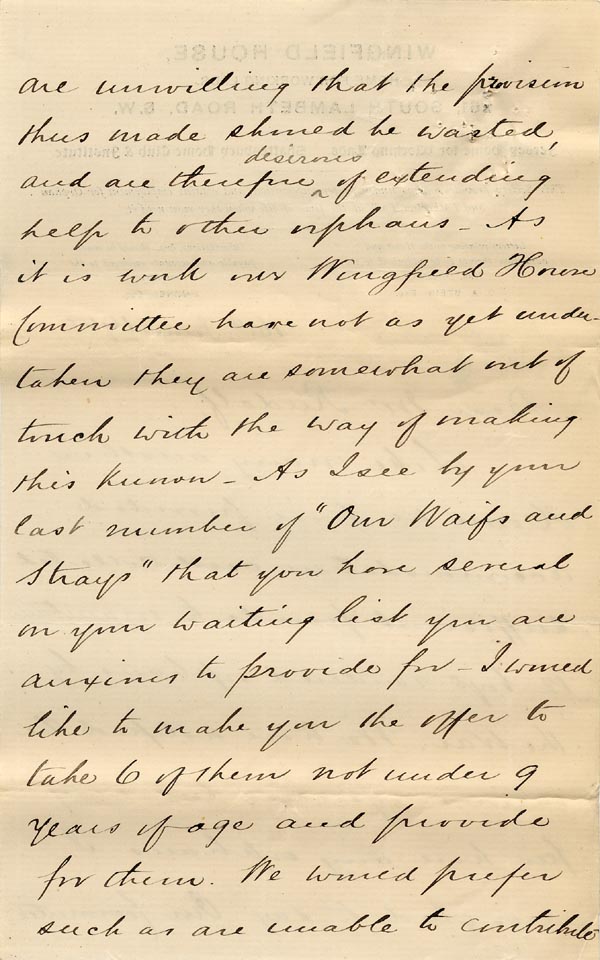 are unwilling that the provision
thus made should be wasted,
desirous
and are therefore ^ of extending
help to other orphans - As
it is work our Wingfield House
Committee have not as yet under-
taken they are somewhat out of
touch with the way of making
this known - As I see by your
last number of "Our Waifs and
Strays" that you have several
on your waiting list you are
anxious to provide for - I would
like to make you the offer to
take 6 of them not under 9
years of age and provide
for them. We would prefer
such as are unable to contribute